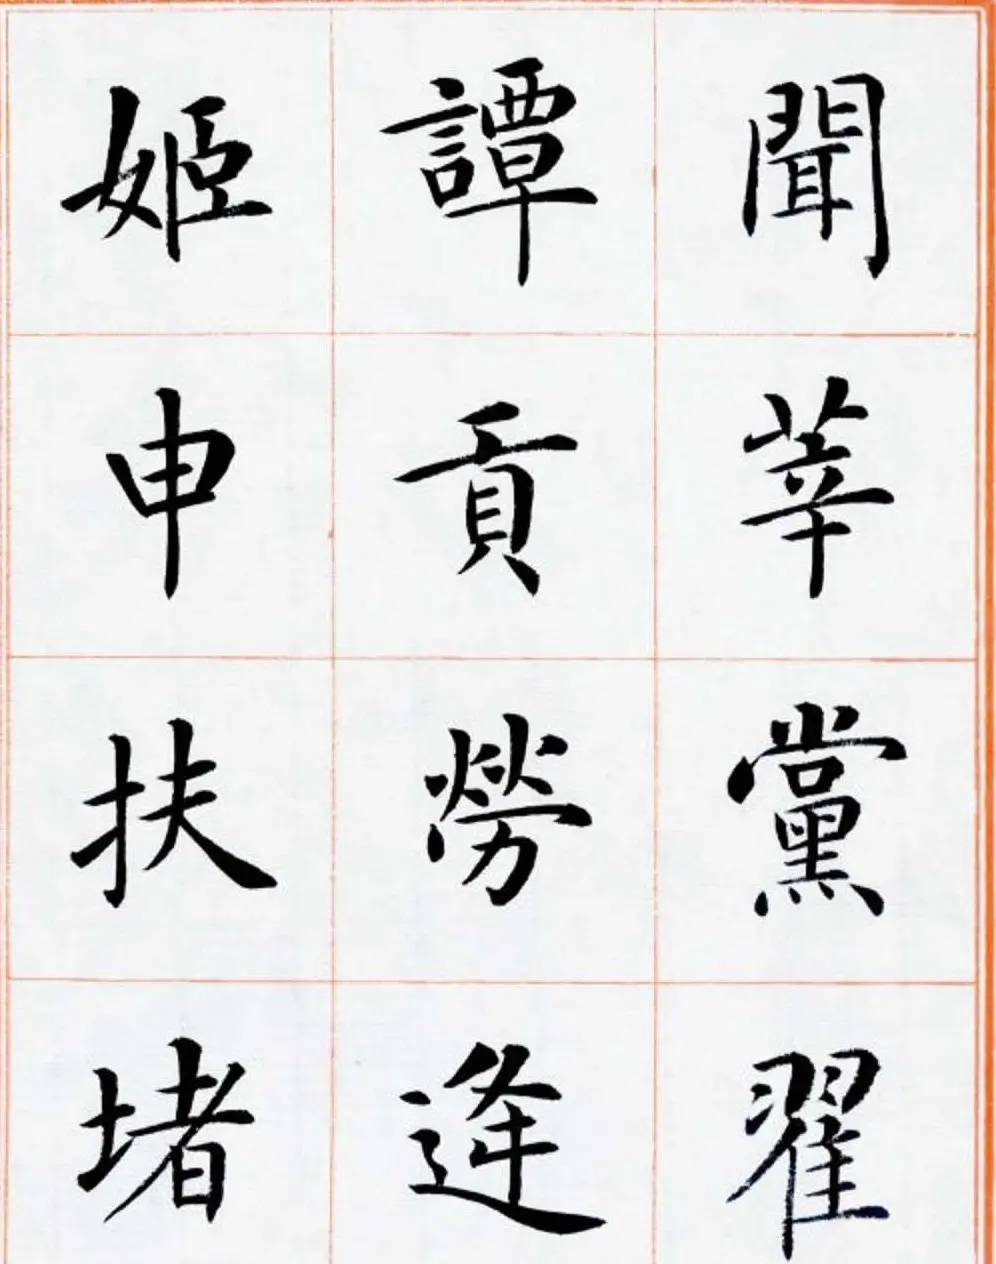 聞莘黨翟
譚貢勞逄
姬申扶堵